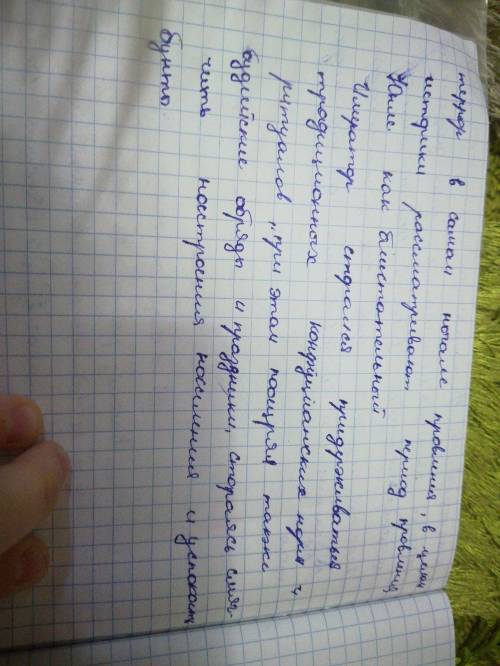 террор в самом начале правления, в целом
историки рассматривают период правления
Юнлэ как блистательный
Император старался придерживаться
традиционных конфуцианских норм и
ритуалов, при этом поощрял также
буддийские обряды и праздники, стараясь смяг-
чить настроения населения и успокоить
бунты.